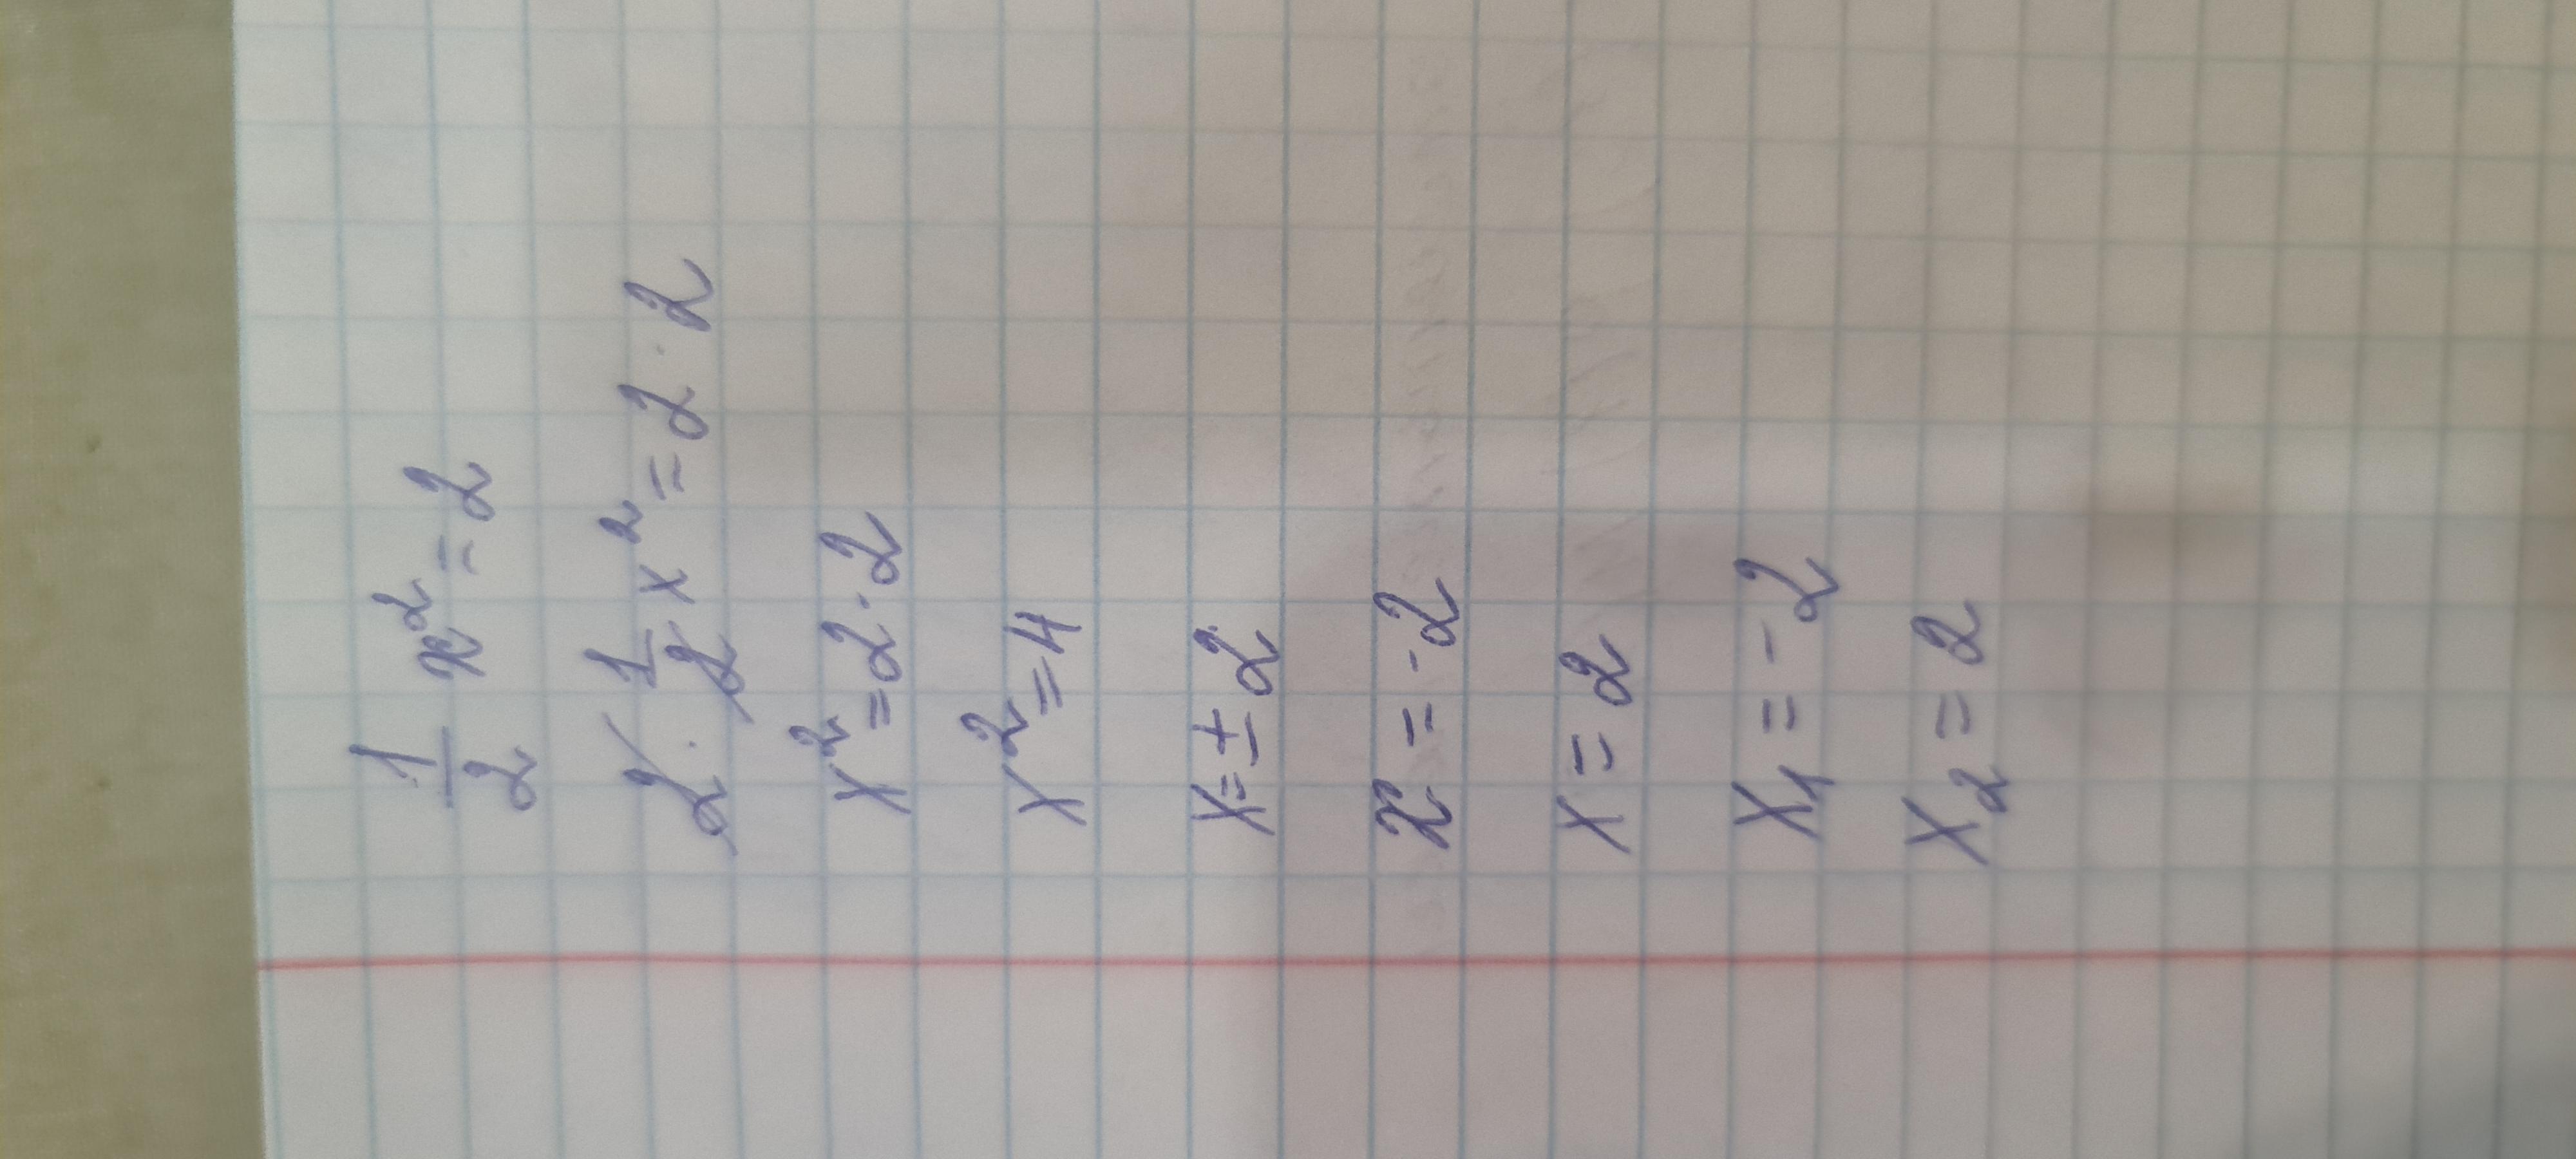 1/2 x² = 2
2 · 1/2 x² = 2 · 2
x² = 2 · 2
x² = 4
x = ± 2
x = -2
x = 2
x₁ = -2
x₂ = 2